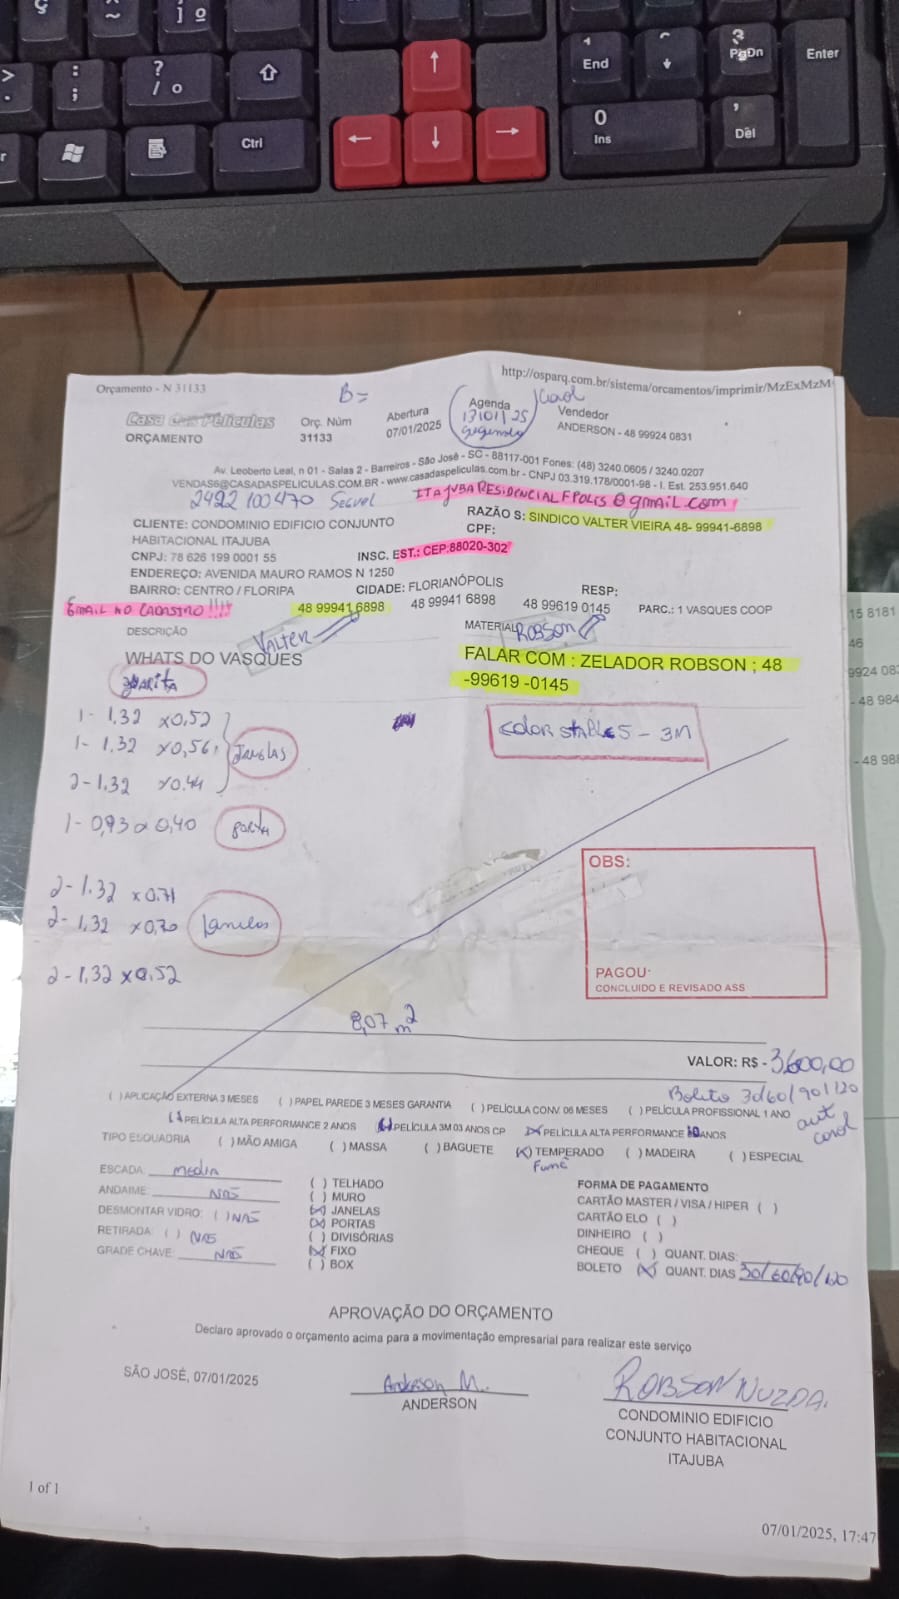 Ç
~
] º
>
.
:
;
?
/ º
Ctrl
End
PgDn
Enter
0
Ins
,
Del
Orçamento - N 31133
http://osparq.com.br/sistema/orcamentos/imprimir/MzExMzM
B=
Casa das Películas
ORÇAMENTO
Orç. Núm
31133
Abertura
07/01/2025
Agenda
13/01/25
Segunda
Carol
Vendedor
ANDERSON - 48 99924 0831
Av. Leoberto Leal, n 01 - Salas 2 - Barreiros - São José - SC - 88117-001 Fones: (48) 3240.0605 / 3240.0207
VENDAS6@CASADASPELICULAS.COM.BR - www.casadaspeliculas.com.br - CNPJ 03.319.178/0001-98 - I. Est. 253.951.640
2422 100470
ITAJUBARESIDENCIALFPOLIS@gmail.com
CLIENTE: CONDOMINIO EDIFICIO CONJUNTO
HABITACIONAL ITAJUBA
RAZÃO S: SINDICO VALTER VIEIRA 48- 99941-6898
CPF:
CNPJ: 78 626 199 0001 55
INSC. EST.: CEP:88020-302
ENDEREÇO: AVENIDA MAURO RAMOS N 1250
BAIRRO: CENTRO / FLORIPA
CIDADE: FLORIANÓPOLIS
RESP:
EMAIL NO CADASTRO!!!!
48 99941 6898
48 99941 6898
48 99619 0145
PARC.: 1 VASQUES COOP
DESCRIÇÃO
VALTER
MATERIAL
ROBSON
WHATS DO VASQUES
FALAR COM : ZELADOR ROBSON ; 48
-99619 -0145
guarita
1- 1,32 x0,52
1- 1,32 x0,56
Janelas
2-1,32 x0,44
1- 0,93 x 0,40
porta
COLOR STABLES - 3M
2-1.32 x0.71
2-1,32 x0,70
Janelas
2-1,32 x0,52
OBS:
PAGOU:
CONCLUIDO E REVISADO ASS
8,07 m2
VALOR: R$ - 3.600,00
Boleto 30/60/90/120
aut
Carol
( ) APLICAÇÃO EXTERNA 3 MESES ( ) PAPEL PAREDE 3 MESES GARANTIA ( ) PELÍCULA CONV. 06 MESES ( ) PELÍCULA PROFISSIONAL 1 ANO
( ) PELÍCULA ALTA PERFORMANCE 2 ANOS ( ) PELÍCULA 3M 03 ANOS CP (X) PELÍCULA ALTA PERFORMANCE 10 ANOS
TIPO ESQUADRIA ( ) MÃO AMIGA ( ) MASSA ( ) BAGUETE (X) TEMPERADO ( ) MADEIRA ( ) ESPECIAL
Fumê
ESCADA: media
ANDAIME: NÃO
DESMONTAR VIDRO: ( ) NÃO
RETIRADA: ( ) NÃO
GRADE CHAVE: NÃO
( ) TELHADO
( ) MURO
(X) JANELAS
(X) PORTAS
( ) DIVISÓRIAS
(X) FIXO
( ) BOX
FORMA DE PAGAMENTO
CARTÃO MASTER / VISA / HIPER ( )
CARTÃO ELO ( )
DINHEIRO ( )
CHEQUE ( ) QUANT. DIAS:
BOLETO (X) QUANT. DIAS 30/60/90/120
APROVAÇÃO DO ORÇAMENTO
Declaro aprovado o orçamento acima para a movimentação empresarial para realizar este serviço
SÃO JOSÉ, 07/01/2025
Anderson M.
ANDERSON
ROBSON NUZDA.
CONDOMINIO EDIFICIO
CONJUNTO HABITACIONAL
ITAJUBA
1 of 1
07/01/2025, 17:47
15 8181
46
9924 083
- 48 984
- 48 988